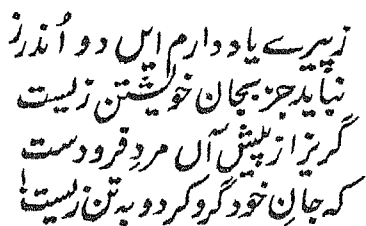 ز پیرے یاد دارم ایں دو اُندرز
نباید جز بجان خویشتن زیست
گریز از پیش آں مردِ فرو دست
که جانِ خود گرو کرد و به تن زیست!